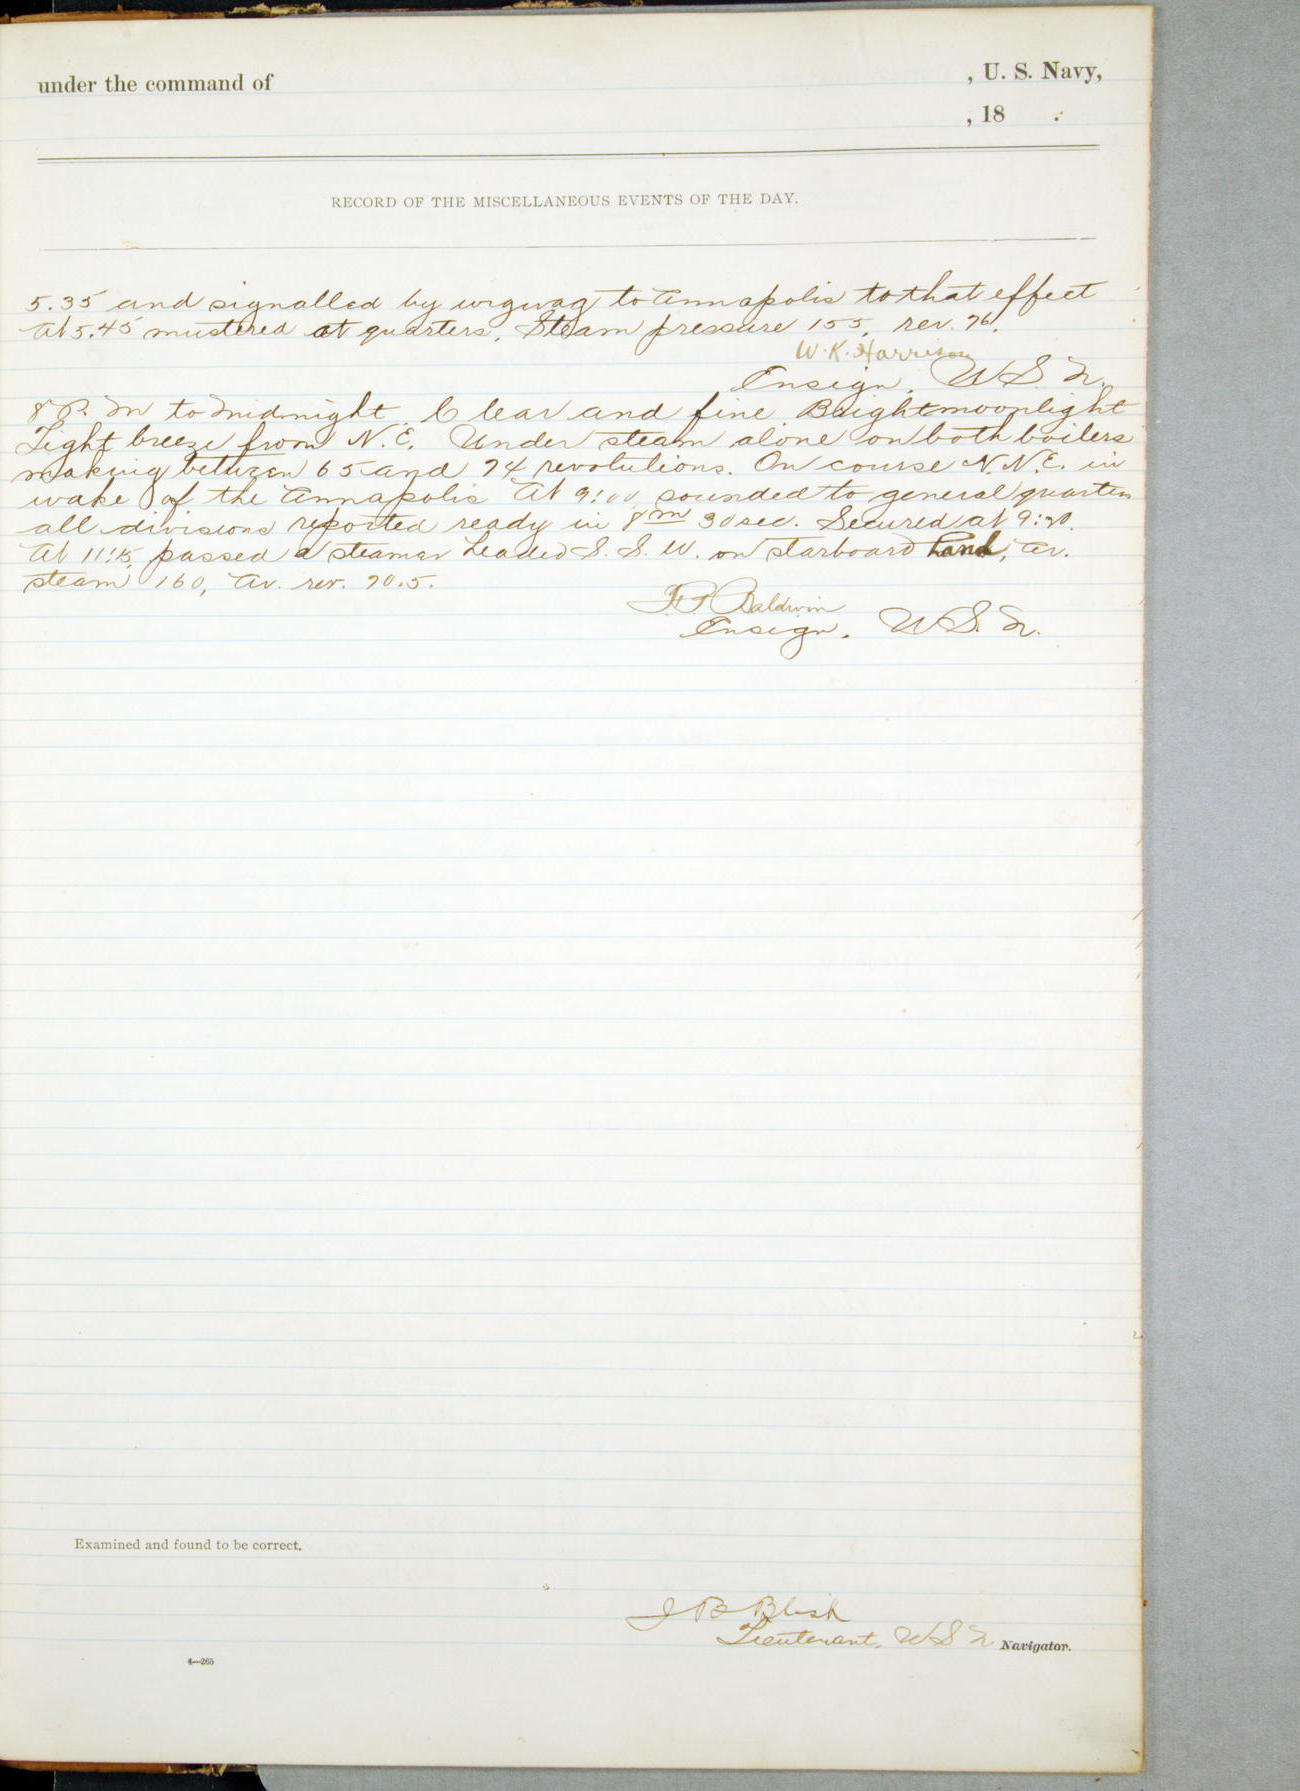 under the command of , U. S. Navy,
, 18 .
RECORD OF THE MISCELLANEOUS EVENTS OF THE DAY.
5.35 and signalled by wigwag to Annapolis to that effect
At 5.45 mustered at quarters. Steam pressure 155, rev. 76.
W. K. Harrison
Ensign, U.S.N.
8 P.M to Midnight. Clear and fine Bright moonlight
Light breeze from N.E. Under steam alone on both boilers
making between 65 and 74 revolutions. On course N.N.E. in
wake of the Annapolis At 9:00 sounded to general quarters
all divisions reported ready in 8m 30 sec. Secured at 9:20.
At 11:15 passed a steamer headed S. S. W. on starboard hand, Av.
steam 160, Av. rev. 70.5.
Baldwin
Ensign. U.S.N.
Examined and found to be correct.
J B Blish
Lieutenant, U S N Navigator.
4—265